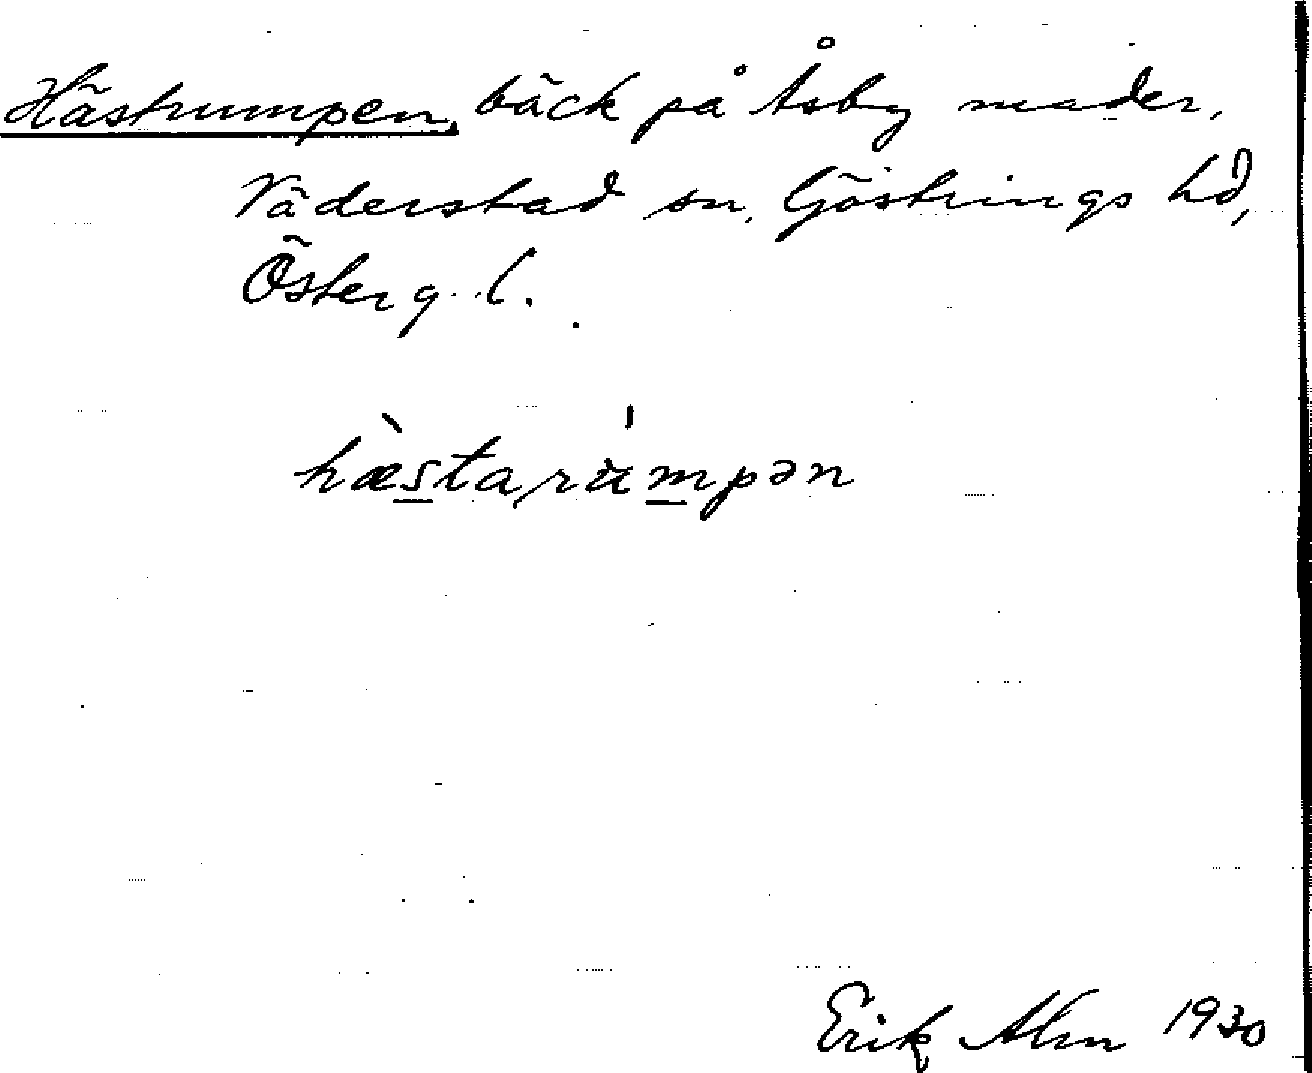 Hästrumpen, bäck på Åsby mader,
Väderstad sn, Göstrings hd,
Österg. l.
hæstarumpən
Erik Alm 1930